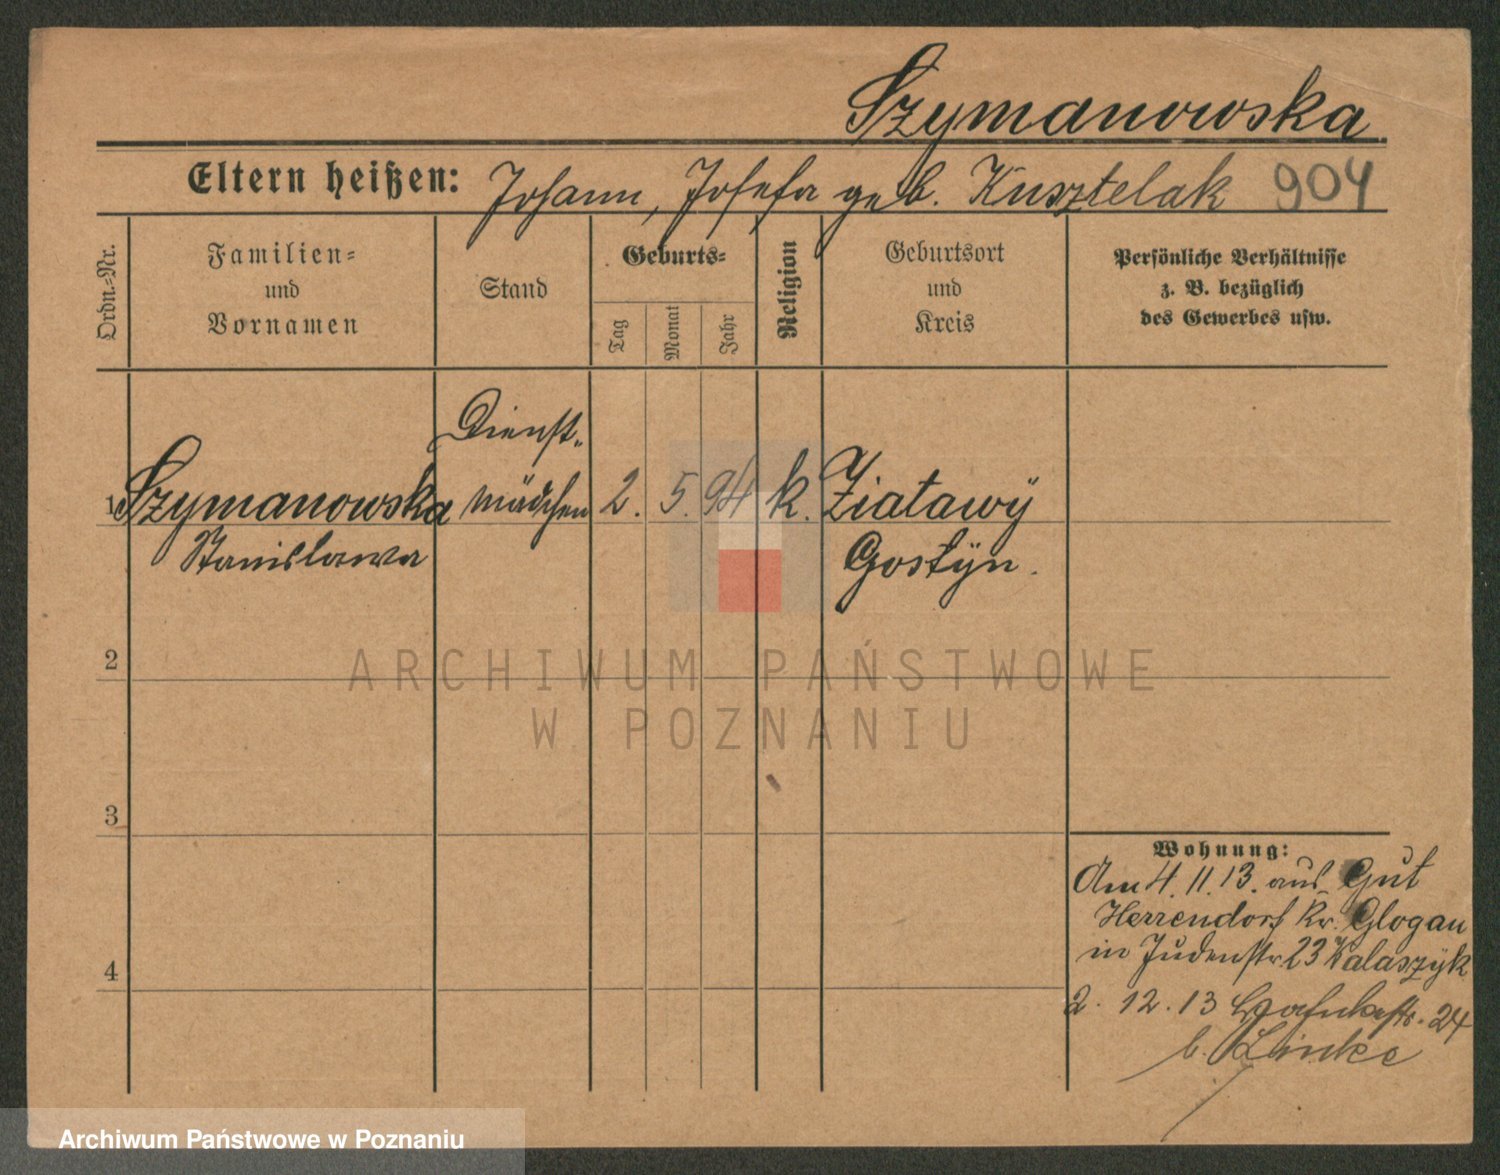 Szymanowska
Eltern heißen: Johann, Josefa geb. Kusztelak 904
Ordn.-Nr.
Familien-
und
Vornamen
Stand
Geburts-
Tag
Monat
Jahr
Religion
Geburtsort
und
Kreis
Persönliche Verhältnisse
z. B. bezüglich
des Gewerbes usw.
Dienst-
1 Szymanowska mädchen 2. 5. 94 k. Ziatawÿ
Stanislawa Gostÿn.
2
3
4
ARCHIWUM PAŃSTWOWE
W POZNANIU
Wohnung:
Am 4.11.13. aus Gut
Herrendorf Kr. Glogau
in Judenstr 23 Walaszÿk
2. 12. 13 24
b. Linke
Archiwum Państwowe w Poznaniu